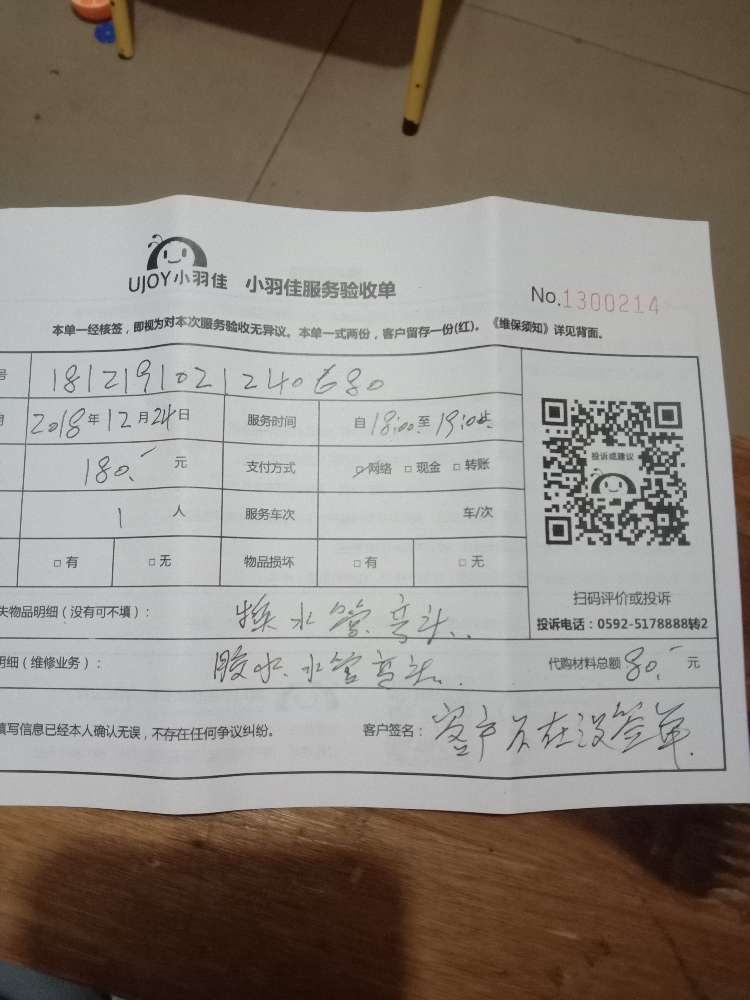 UJOY小羽佳 小羽佳服务验收单 No.1300214
本单一经核签，即视为对本次服务验收无异议。本单一式两份，客户留存一份(红)。《维保须知》详见背面。
号 1812191021240680
2018年12月24日 服务时间 自18:00至19:00止
180.- 元 支付方式 □网络 □现金 □转账
投诉或建议
1 人 服务车次 车/次
□有 □无 物品损坏 □有 □无
扫码评价或投诉
失物品明细（没有可不填）： 换水管弯头.. 投诉电话：0592-5178888转2
明细（维修业务）： 胶水.水管弯头.. 代购材料总额 80.- 元
填写信息已经本人确认无误，不存在任何争议纠纷。 客户签名： 客户不在没签单.